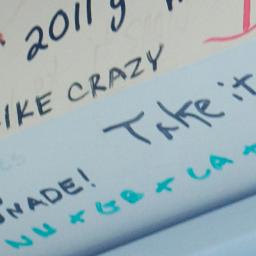 2011
IKE CRAZY
Take it
NADE!
NU * GB * LA *